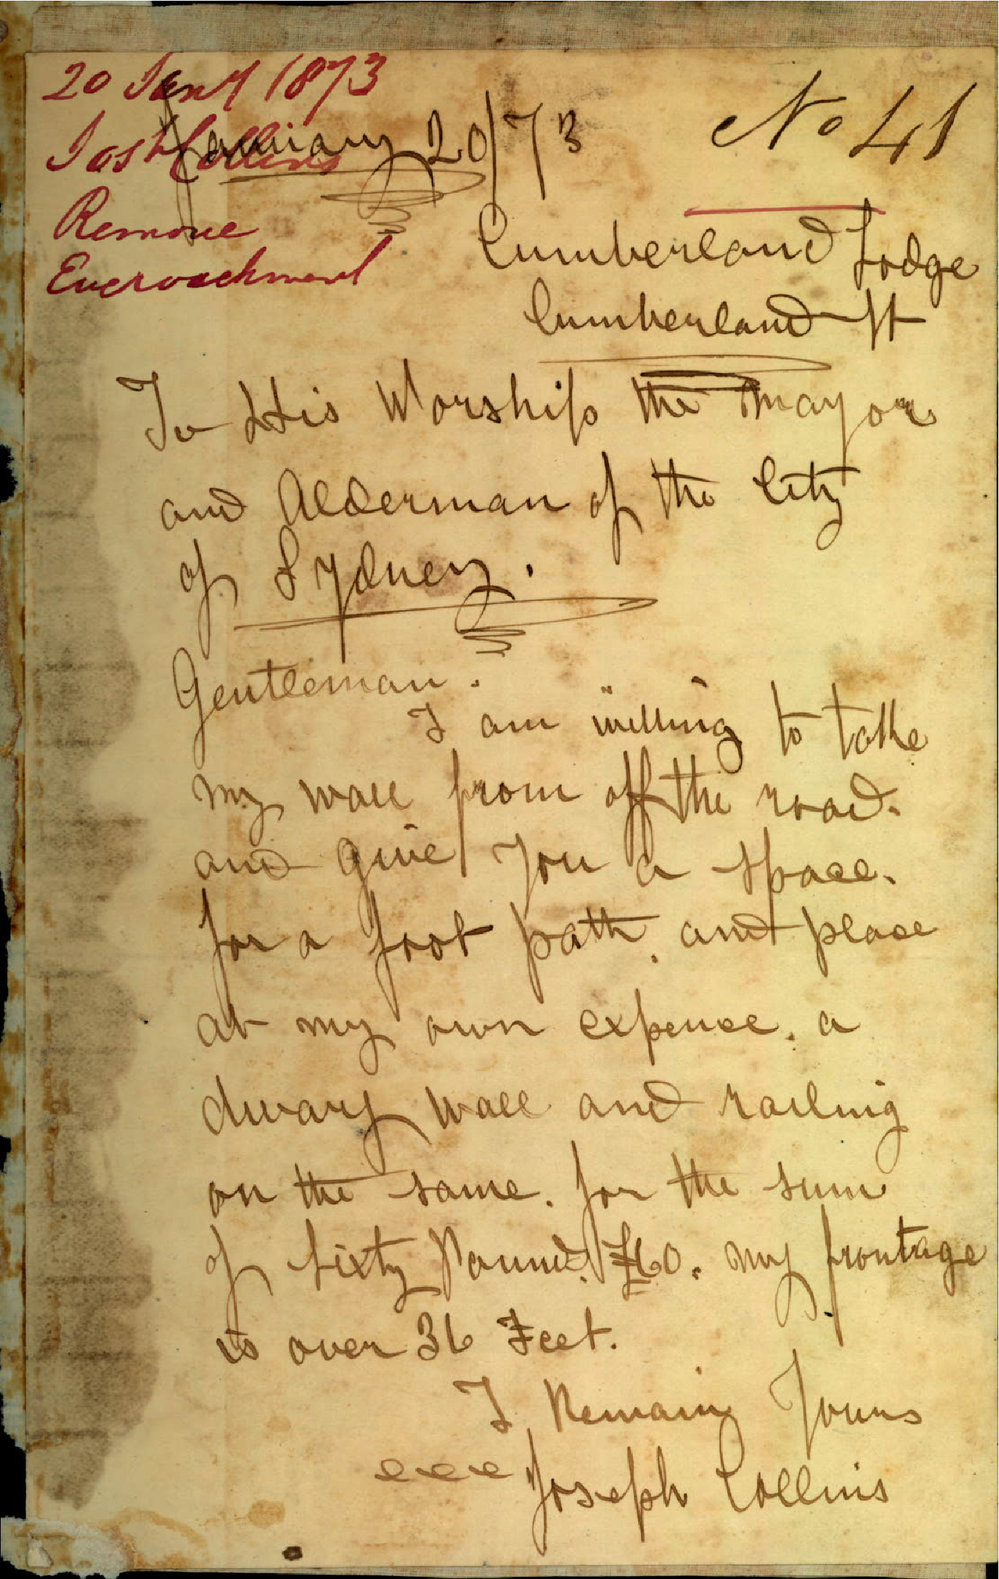 20 Jany 1873
Josh Collins
Remove
Encroachment
January 20/73
No 41
Cumberland Lodge
Cumberland St
To His Worship the Mayor
and Alderman of the City
of Sydney.
Gentleman.
I am willing to take
my wall from off the road.
and give you a space.
for a foot path. and place
at my own expence. a
dwarf wall and railing
on the same. for the sum
of sixty Pound. £60. my frontage
is over 36 Feet.
I Remain Yours
Joseph Collins